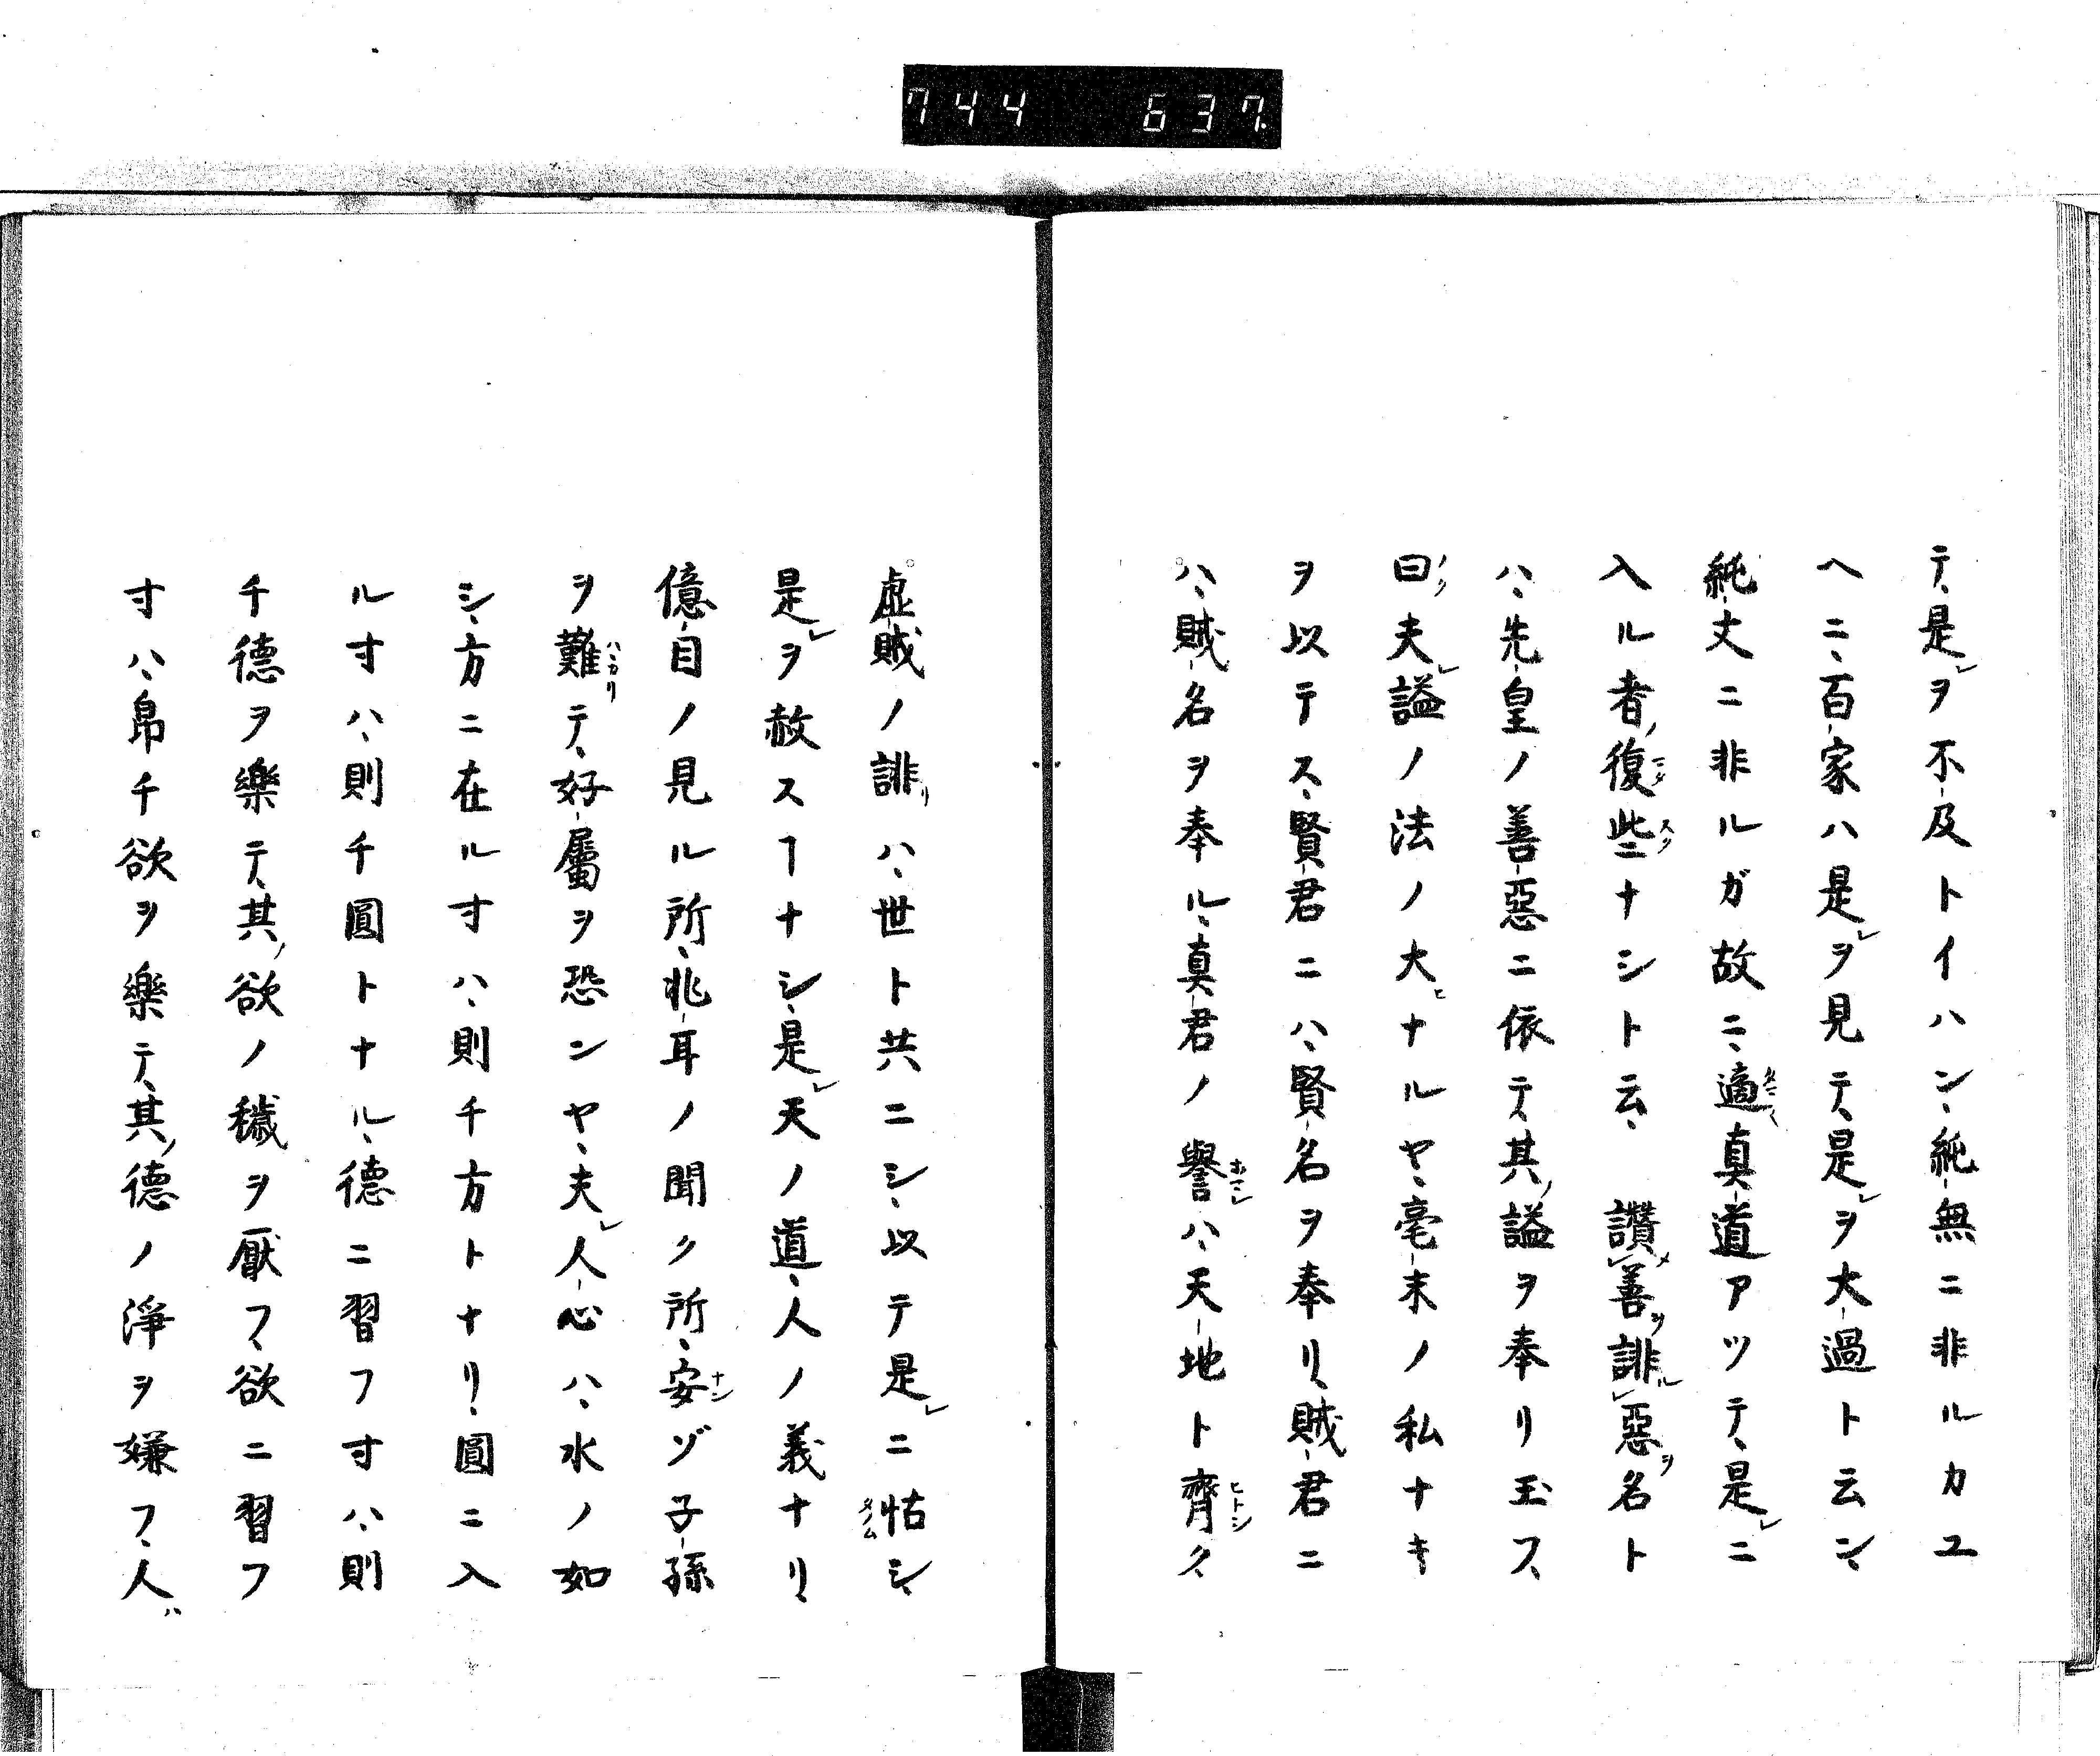 744 637
テ、是レヲ不及トイハン、純無ニ非ルカユ
ヘニ、百家ハ是レヲ見テ、是レヲ大過ト云ン、
純丈ニ非ルガ故ニ、適真道アツテ、是レニ
入ル者ノ、復些ニナシト云、讚善誹惡名ト
ハ、先皇ノ善惡ニ依テ、其ノ謚ヲ奉リ玉フ、
曰ク夫レ謚ノ法ノ大ヒナルヤ、毫末ノ私ナキ
ヲ以テス、賢君ニハ、賢名ヲ奉リ、賊君ニ
ハ、賊名ヲ奉ル、真君ノ譽ハ、天地ト齊ク、
虚賊ノ誹リハ、世ト共ニシ、以テ是レニ怙シ、
是レヲ赦スヿナシ、是レ天ノ道、人ノ義ナリ、
億目ノ見ル所、兆耳ノ聞ク所、安ゾ子孫
ヲ難テ、好屬ヲ恐ンヤ、夫レ人心ハ、水ノ如
シ、方ニ在ル寸ハ、則チ方トナリ、圓ニ入
ル寸ハ、則チ圓トナル、德ニ習フ寸ハ、則
チ德ヲ樂テ、其ノ欲ノ穢ヲ厭フ、欲ニ習フ
寸ハ、帛チ欲ヲ樂テ、其ノ德ノ淨ヲ嫌フ、人ハ